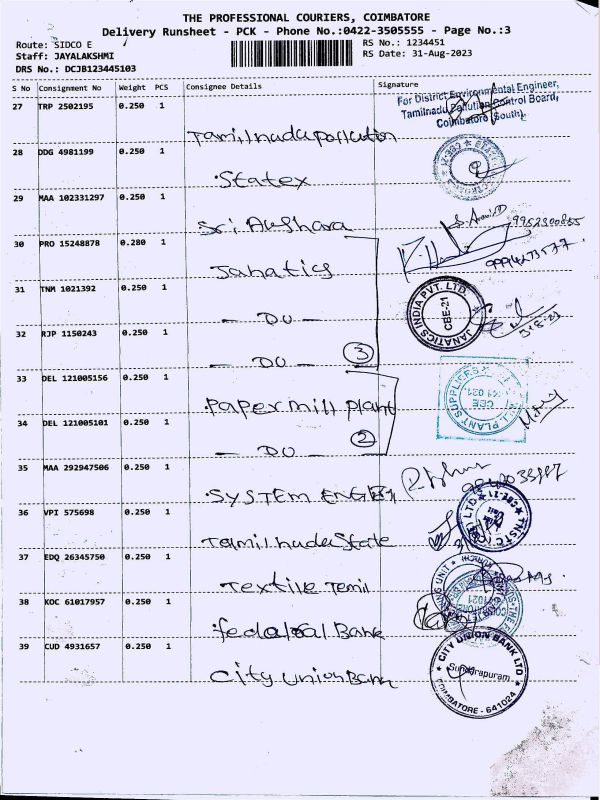 THE PROFESSIONAL COURIERS, COIMBATORE
Delivery Runsheet - PCK - Phone No.:0422-3505555 - Page No.:3
Route: SIDCO E
RS No.: 1234451
Staff: JAYALAKSHMI
RS Date: 31-Aug-2023
DRS No.: DCJB123445103
S No Consignment No Weight PCS Consignee Details Signature
27 TRP 2502195 0.250 1
For District Environmental Engineer,
Tamilnadu Pollution Control Board,
Coimbatore (South).
Tamilnadu Pollution
28 DDG 4981199 0.250 1
Statex
29 MAA 102331297 0.250 1
Sri Akshara
30 PRO 15248878 0.280 1
Janatics
31 TNM 1021392 0.250 1
JANATICS INDIA PVT. LTD.
CBE-21
- DO -
32 RJP 1150243 0.250 1
- DO - 3
33 DEL 121005156 0.250 1
papermill plant
PLANT SUPPLIERS
CBE
641 021
34 DEL 121005101 0.250 1
- DO - 2
35 MAA 292947506 0.250 1
SYSTEM ENGR
36 VPI 575698 0.250 1
Tamilnadu State
TNSTC
CBE-21
37 EDQ 26345750 0.250 1
Textile Tamil
38 KOC 61017957 0.250 1
federal Bank
39 CUD 4931657 0.250 1
City Union Bank
CITY UNION BANK LTD
Sundarapuram
COIMBATORE - 641024